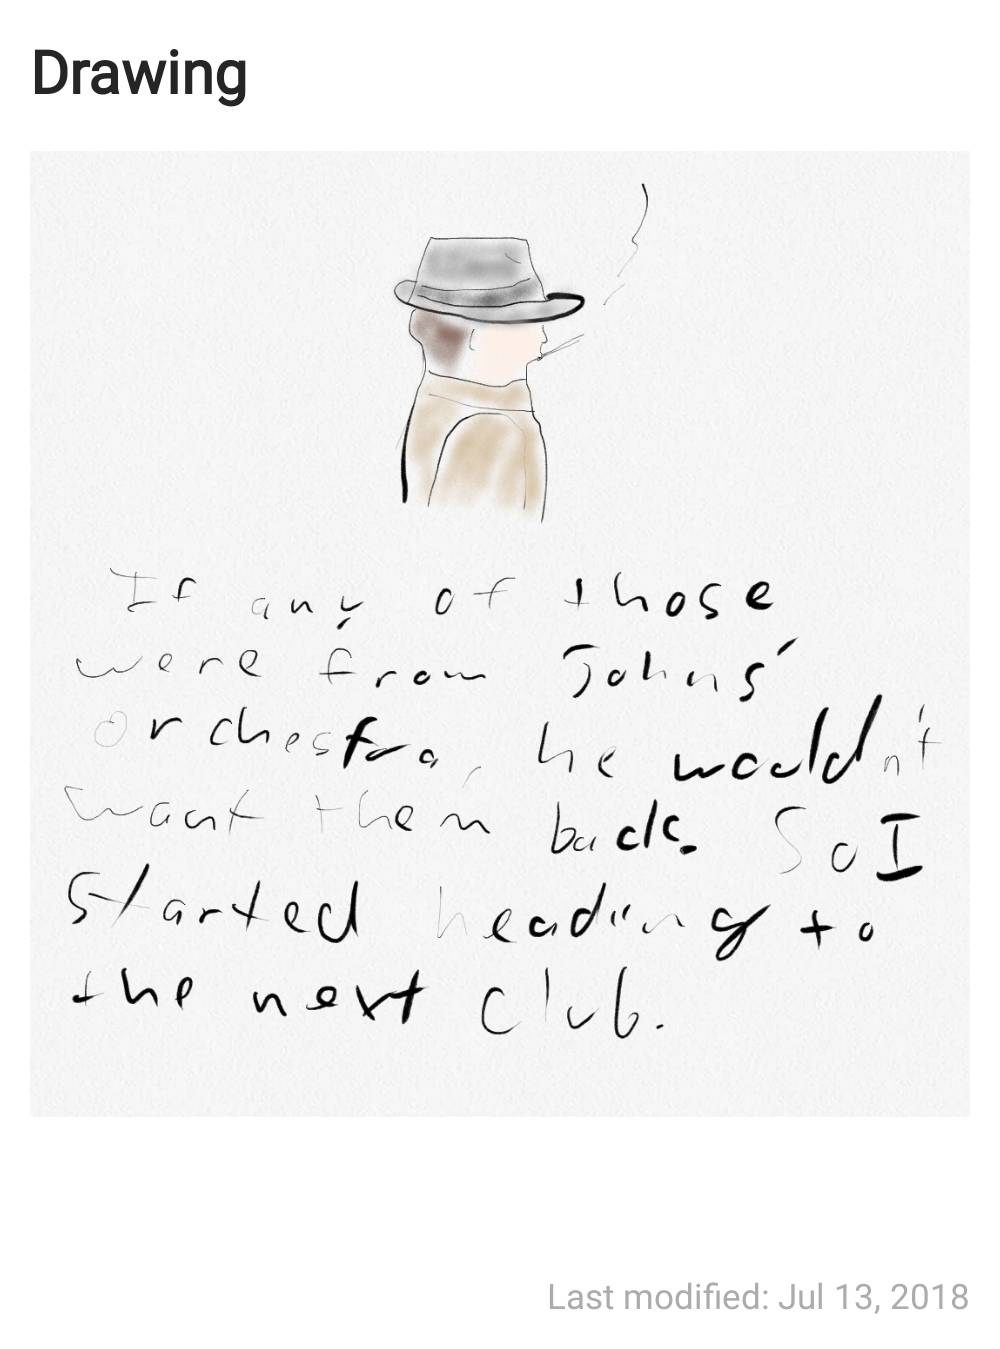 Drawing
If any of those
were from Johns'
orchestra, he wouldn't
want them back. So I
started heading to
the next club.
Last modified: Jul 13, 2018